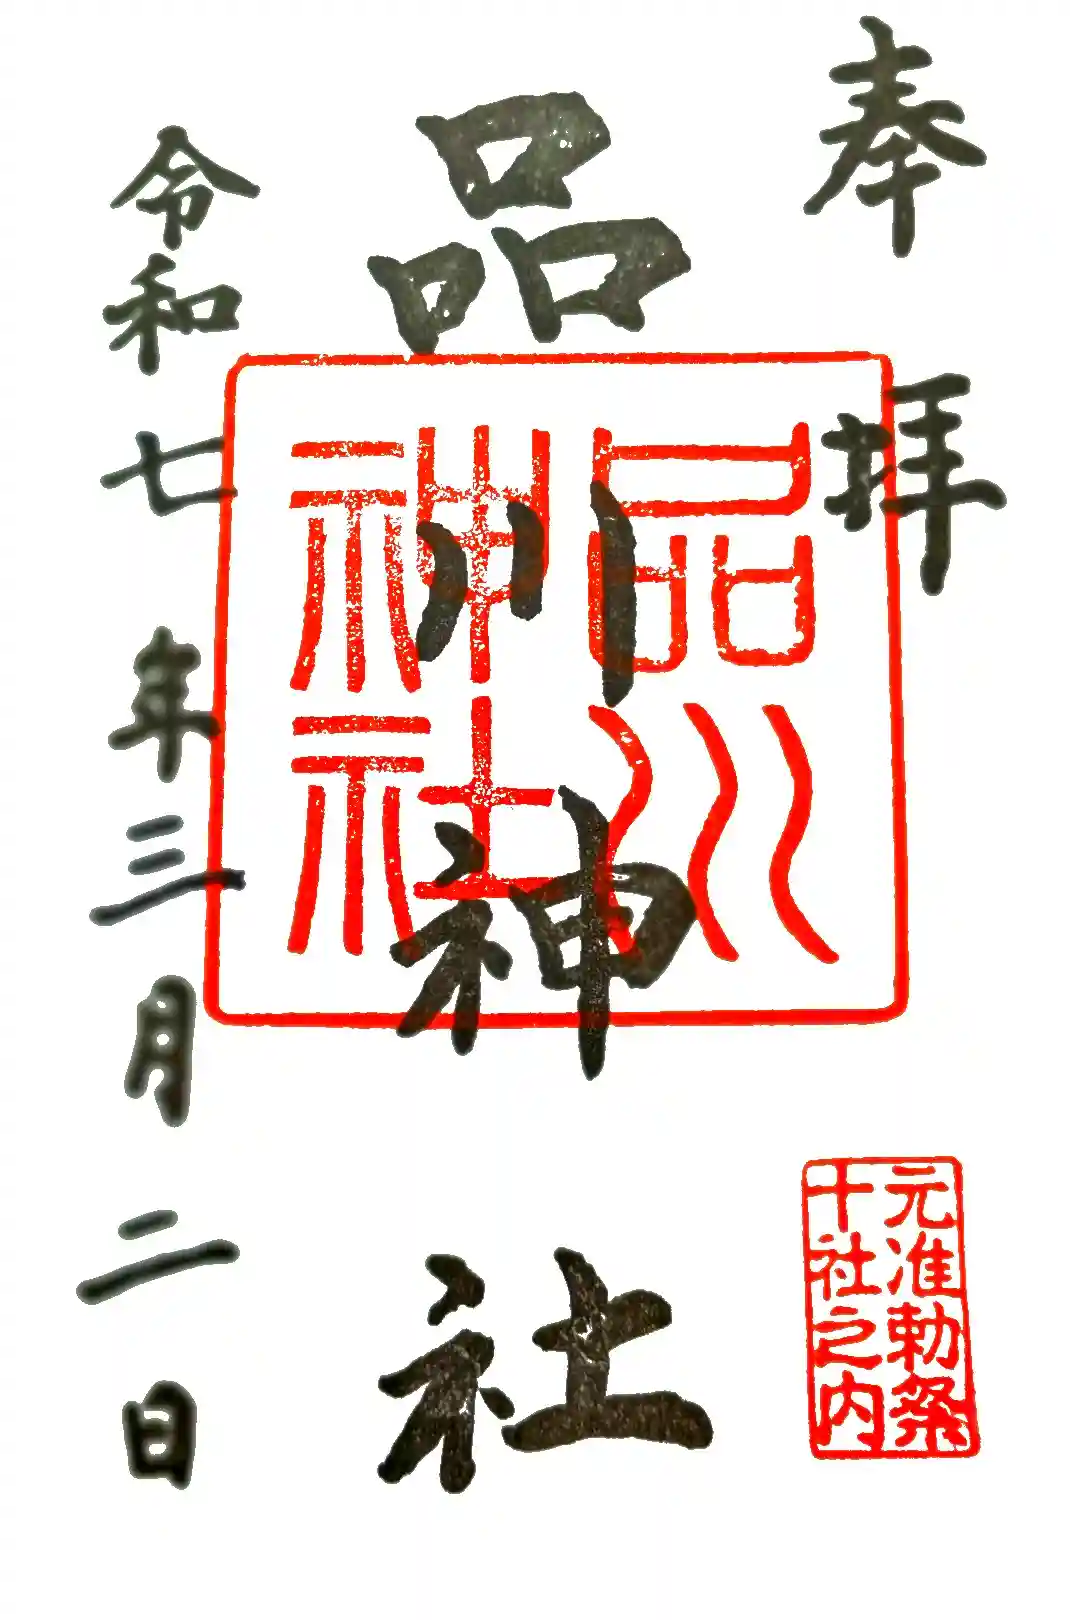 奉拝
品川神社
品川
神社
令和七年三月二日
元准勅祭
十社之内